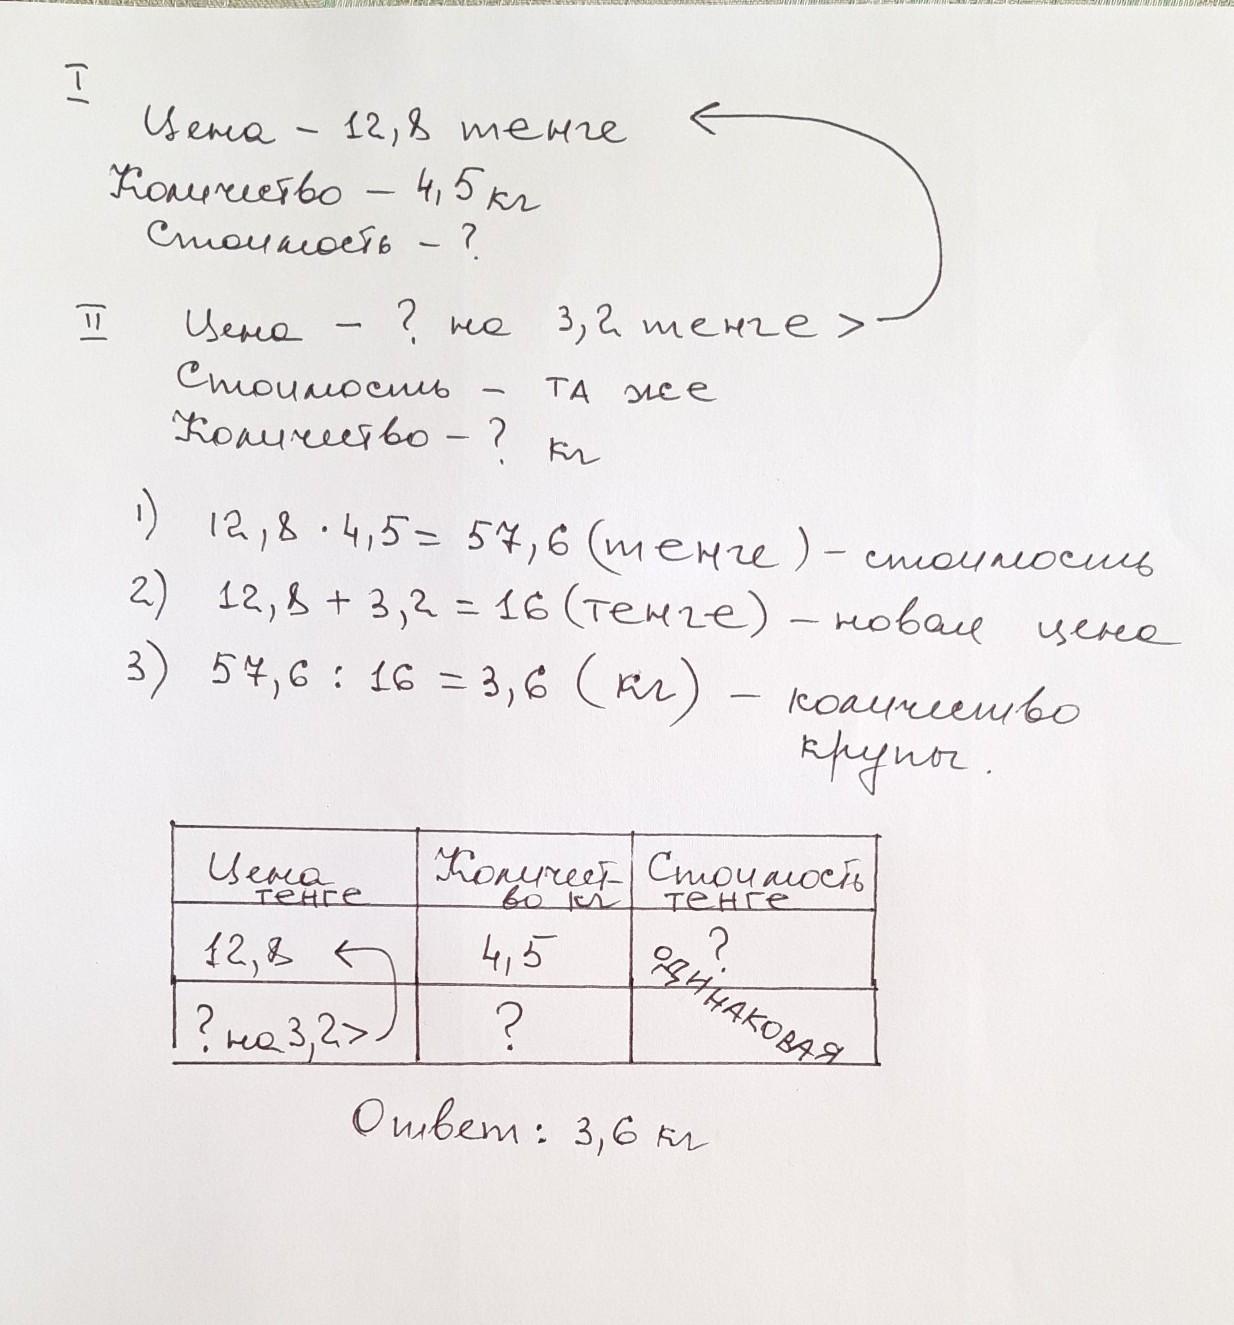 I
Цена – 12,8 тенге
Количество – 4,5 кг
Стоимость – ?
II Цена – ? на 3,2 тенге >
Стоимость – ТА же
Количество – ? кг
1) 12,8 · 4,5 = 57,6 (тенге) – стоимость
2) 12,8 + 3,2 = 16 (тенге) – новая цена
3) 57,6 : 16 = 3,6 (кг) – количество
крупы.
Цена тенге Количест-во кг Стоимость тенге
12,8 4,5 ?
? на 3,2> ? ОДИНАКОВАЯ
Ответ: 3,6 кг